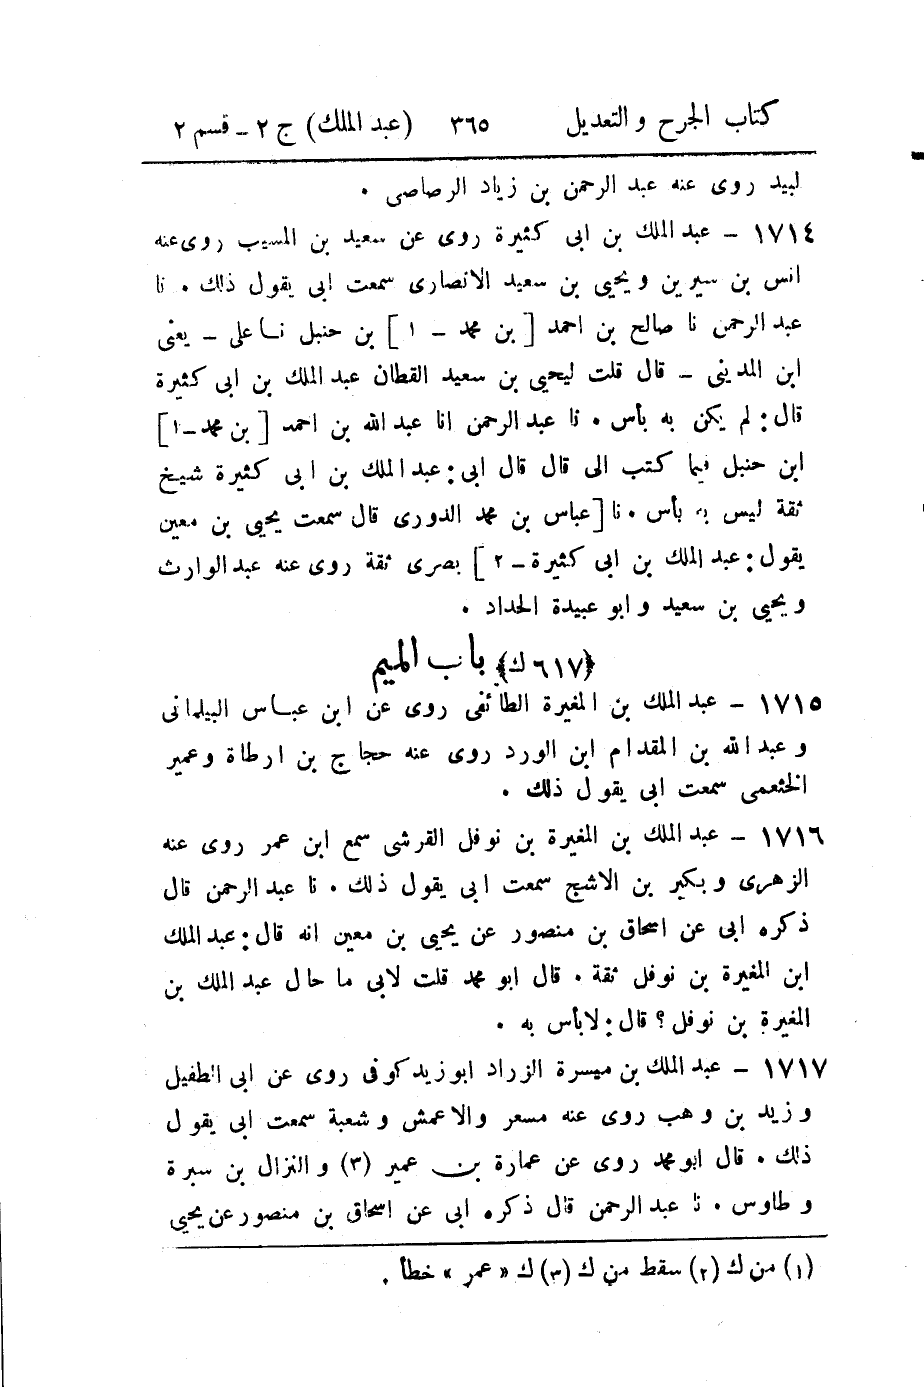 كتاب الجرح والتعديل ٣٦٥ (عبد الملك) ج ٢ - قسم ٢
لبيد روى عنه عبد الرحمن بن زياد الرصاصى .
١٧١٤ - عبد الملك بن ابى كثيرة روى عن سعيد بن المسيب روى عنه
انس بن سيرين ويحيى بن سعيد الانصارى سمعت ابى يقول ذلك . نا
عبد الرحمن نا صالح بن احمد [ بن محمد - ١ ] بن حنبل نا على - يعنى
ابن المدينى - قال قلت ليحيى بن سعيد القطان عبد الملك بن ابى كثيرة
قال: لم يكن به بأس . نا عبد الرحمن انا عبد الله بن احمد [ بن محمد - ١ ]
ابن حنبل فيما كتب الى قال قال ابى: عبد الملك بن ابى كثيرة شيخ
ثقة ليس به بأس . نا [ عباس بن محمد الدورى قال سمعت يحيى بن معين
يقول: عبد الملك بن ابى كثيرة - ٢ ] بصرى ثقة روى عنه عبد الوارث
ويحيى بن سعيد وابو عبيدة الحداد .
﴿٦١٧ ك﴾ باب الميم
١٧١٥ - عبد الملك بن المغيرة الطائفى روى عن ابن عباس البيلمانى
وعبد الله بن المقدام ابن الورد روى عنه حجاج بن ارطاة وعمير
الخثعمى سمعت ابى يقول ذلك .
١٧١٦ - عبد الملك بن المغيرة بن نوفل القرشى سمع ابن عمر روى عنه
الزهرى وبكير بن الاشج سمعت ابى يقول ذلك . نا عبد الرحمن قال
ذكره ابى عن اسحاق بن منصور عن يحيى بن معين انه قال: عبد الملك
ابن المغيرة بن نوفل ثقة . قال ابو محمد قلت لابى ما حال عبد الملك بن
المغيرة بن نوفل ؟ قال: لا بأس به .
١٧١٧ - عبد الملك بن ميسرة الزراد ابو زيد كوفى روى عن ابى الطفيل
وزيد بن وهب روى عنه مسعر والاعمش وشعبة سمعت ابى يقول
ذلك . قال ابو محمد روى عن عمارة بن عمير (٣) والنزال بن سبرة
وطاوس . نا عبد الرحمن قال ذكره ابى عن اسحاق بن منصور عن يحيى
(١) من ك (٢) سقط من ك (٣) ك « عمر » خطأ .